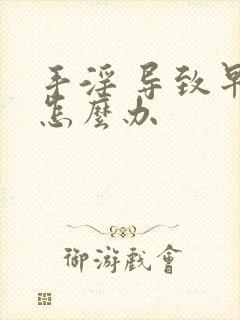 手淫导致早
怎麼办
御游戲會